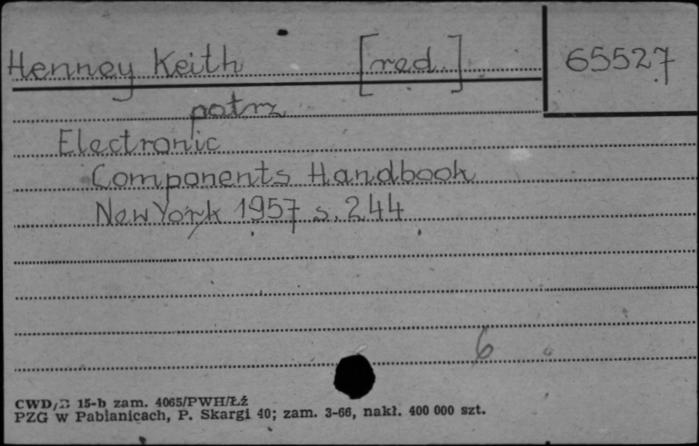 Henney Keith [red.] 65527
patrz
Electronic
Components Handbook
New York 1957 s. 244
6
CWD/B 15-b zam. 4065/PWH/Łź
PZG w Pabianicach, P. Skargi 40; zam. 3-66, nakł. 400 000 szt.